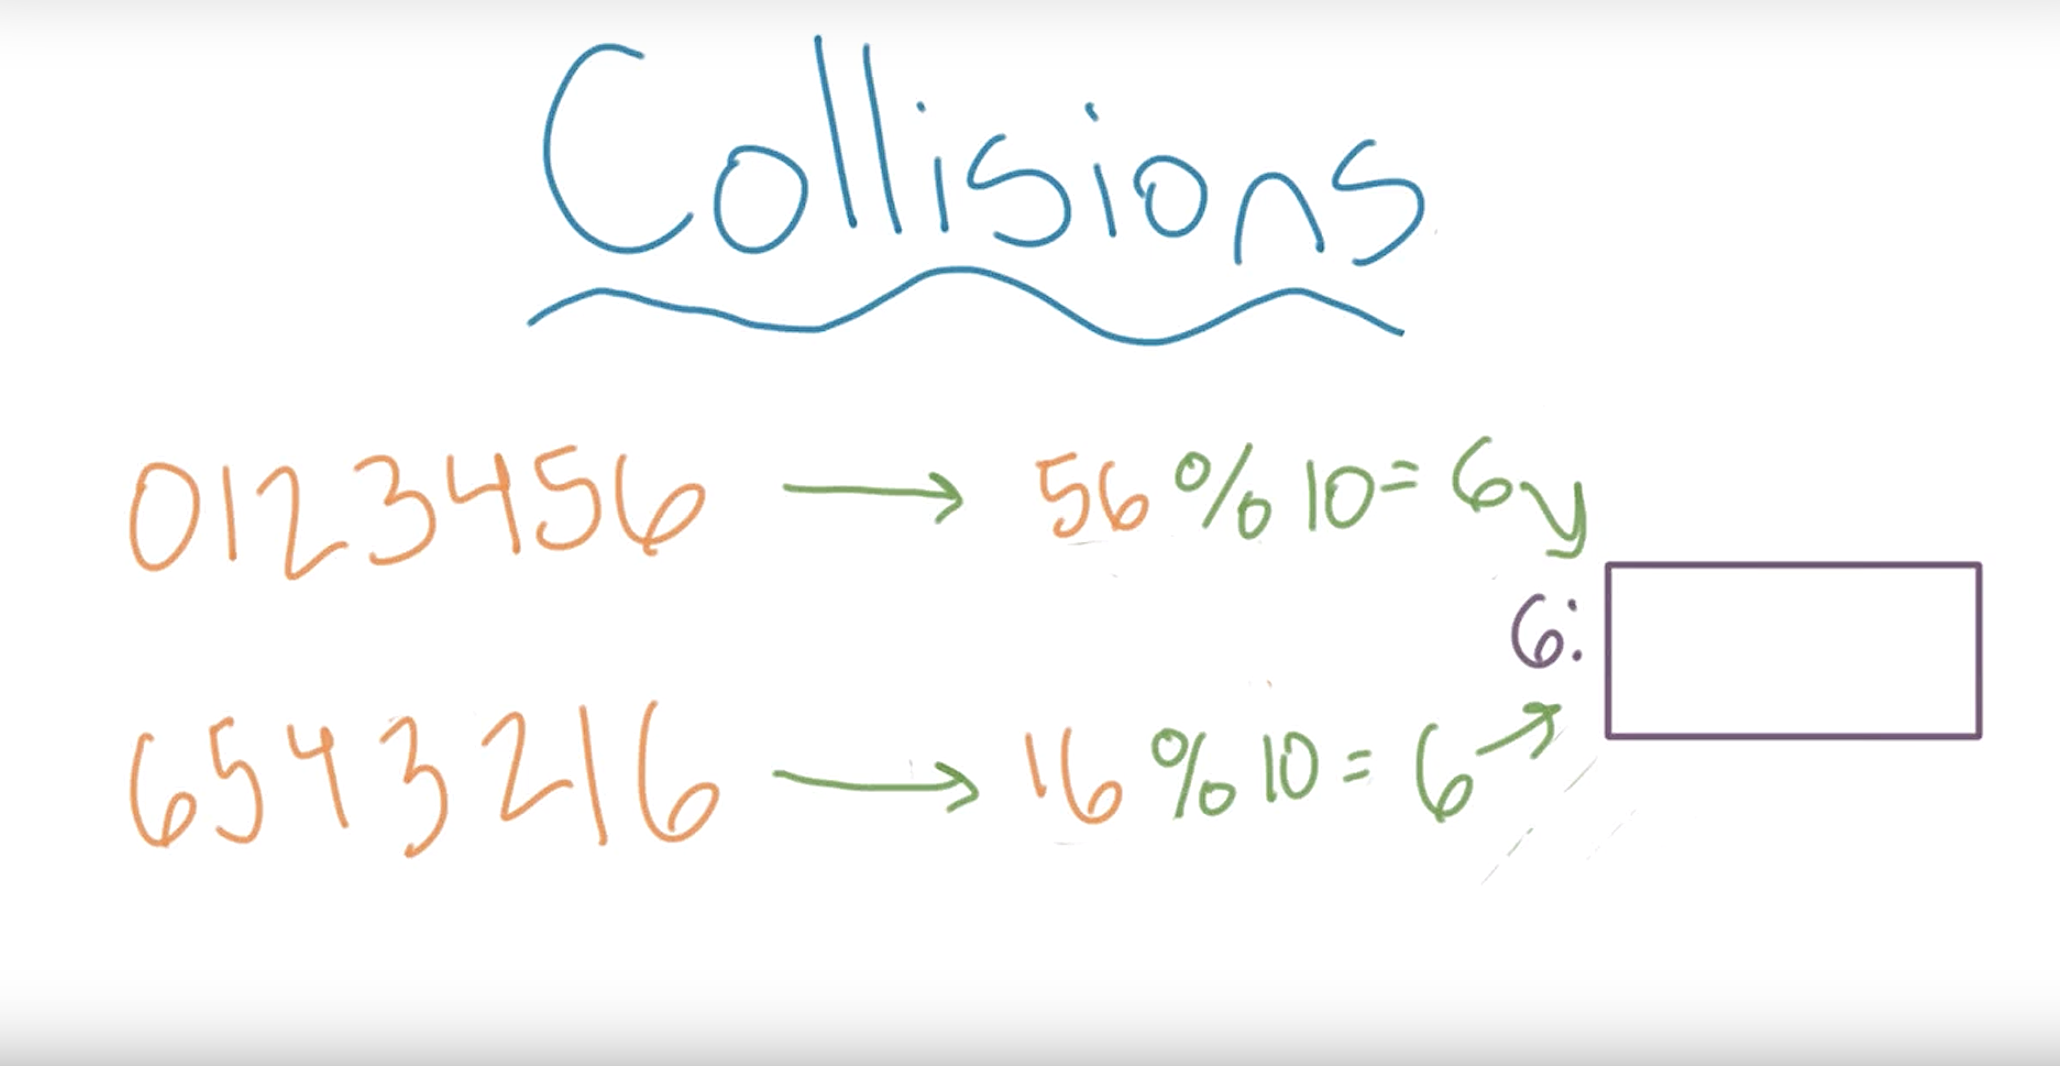 Collisions
0123456 → 56 % 10 = 6
6:
6543216 → 16 % 10 = 6